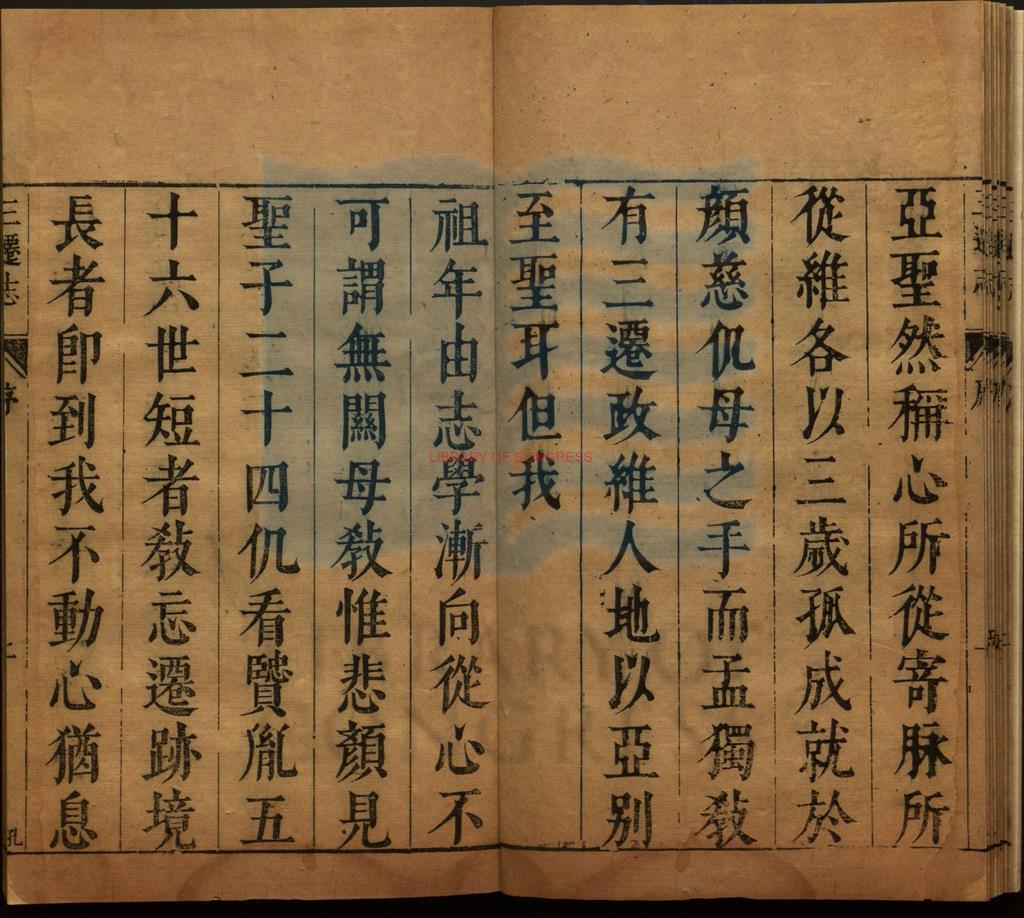 亞聖然稱心所從寄脉所
從維各以三歲孤成就於
顏慈仉母之手而孟獨敎
有三遷政維人地以亞别
至聖耳但我
祖年由志學漸向從心不
可謂無關母敎惟悲顏見
聖子二十四仉看賢胤五
十六世短者敎忘遷跡境
長者卽到我不動心猶息
三遷志
序
二
孔
LIBRARY OF CONGRESS